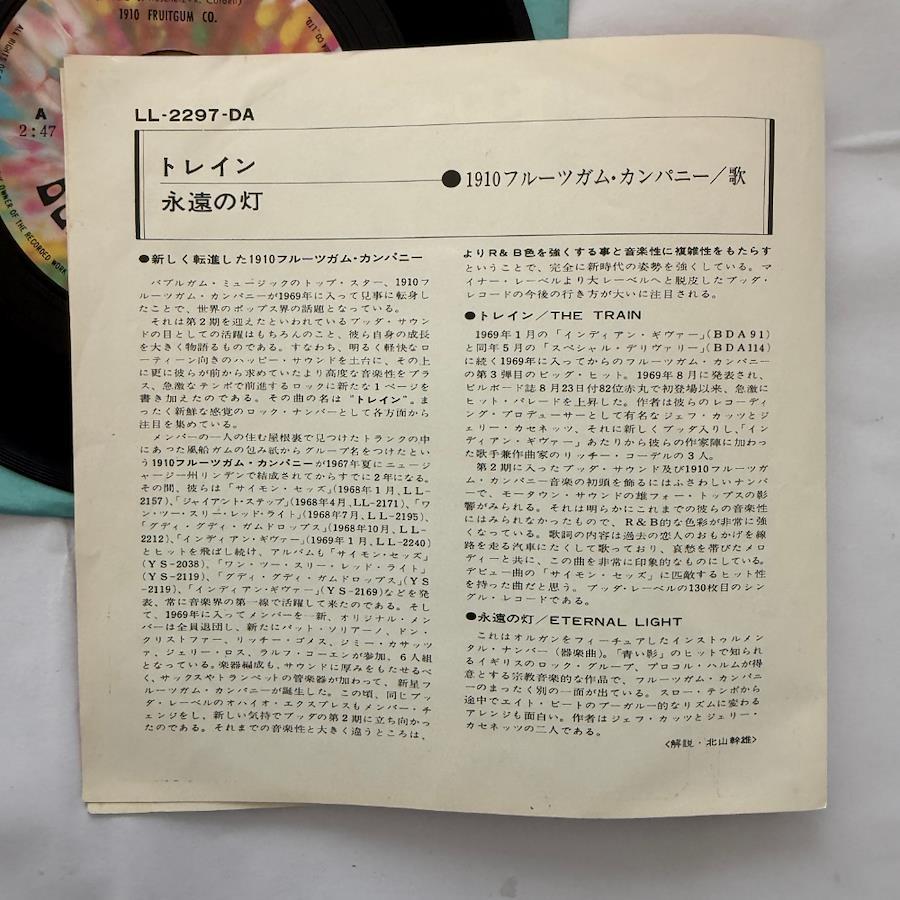 1910 FRUITGUM CO.
A
2:47
OWNER OF THE RECORDED WORK
ALL RIGHTS OF
LL-2297-DA
トレイン
永遠の灯
●1910フルーツガム・カンパニー/歌
●新しく転進した1910フルーツガム・カンパニー
バブルガム・ミュージックのトップ・スター、1910フ
ルーツガム・カンパニーが1969年に入って見事に転身し
たことで、世界のポップス界の話題となっている。
それは第2期を迎えたといわれているブッダ・サウン
ドの目としての活躍はもちろんのこと、彼ら自身の成長
を大きく物語るものである。すなわち、明るく軽快なロ
ーティーン向きのハッピー・サウンドを土台に、その上
に更に彼らが前から求めていたより高度な音楽性をプラ
ス、急激なテンポで前進するロックに新たな1ページを
書き加えたのである。その曲の名は"トレイン"。ま
ったく新鮮な感覚のロック・ナンバーとして各方面から
注目を集めている。
メンバーの一人の住む屋根裏で見つけたトランクの中
にあった風船ガムの包み紙からグループ名をつけたとい
う1910フルーツガム・カンパニーが1967年夏にニュージ
ャージー州リンデンで結成されてからすでに2年になる。
その間、彼らは「サイモン・セッズ」(1968年1月、LL-
2157)、「ジャイアント・ステップ」(1968年4月、LL-2171)、「ワ
ン・ツー・スリー・レッド・ライト」(1968年7月、LL-2195)、
「グディ・グディ・ガムドロップス」(1968年10月、LL-
2212)、「インディアン・ギヴァー」(1969年1月、LL-2240)
とヒットを飛ばし続け、アルバムも「サイモン・セッズ」
(YS-2038)、「ワン・ツー・スリー・レッド・ライト」
(YS-2119)、「グディ・グディ・ガムドロップス」(YS
-2119)、「インディアン・ギヴァー」(YS-2169)などを発
表、常に音楽界の第一線で活躍して来たのである。そし
て、1969年に入ってメンバーを一新、オリジナル・メン
バーは全員退団し、新たにパット・ソリアーノ、ドン・
クリストファー、リッチー・ゴメス、ジミー・カサッツ
ァ、ジェリー・ロス、ラルフ・コーエンが参加、6人組
となっている。楽器編成も、サウンドに厚みをもたせるべ
く、サックスやトランペットの管楽器が加わって、新星フ
ルーツガム・カンパニーが誕生した。この頃、同じブッ
ダ・レーベルのオハイオ・エクスプレスもメンバー・チ
ェンジをし、新しい気持でブッダの第2期に立ち向かっ
たのである。それまでの音楽性と大きく違うところは、
よりR&B色を強くする事と音楽性に複雑性をもたらす
ということで、完全に新時代の姿勢を強くしている。マ
イナー・レーベルより大レーベルへと脱皮したブッダ・
レコードの今後の行き方が大いに注目される。
●トレイン/THE TRAIN
1969年1月の「インディアン・ギヴァー」(BDA91)
と同年5月の「スペシャル・デリヴァリー」(BDA114)
に続く1969年に入ってからのフルーツガム・カンパニー
の第3弾目のビッグ・ヒット。1969年8月に発表され、
ビルボード誌8月23日付82位赤丸で初登場以来、急激に
ヒット・パレードを上昇した。作者は彼らのレコーディ
ング・プロデューサーとして有名なジェフ・カッツとジ
ェリー・カセネッツ、それに新しくブッダ入りし、「イン
ディアン・ギヴァー」あたりから彼らの作家陣に加わっ
た歌手兼作曲家のリッチー・コーデルの3人。
第2期に入ったブッダ・サウンド及び1910フルーツガ
ム・カンパニー音楽の初頭を飾るにはふさわしいナンバ
ーで、モータウン・サウンドの雄フォー・トップスの影
響がみられる。それは明らかにこれまでの彼らの音楽性
にはみられなかったもので、R&B的な色彩が非常に強
くなっている。歌詞の内容は過去の恋人のおもかげを線
路を走る汽車にたくして歌っており、哀愁を帯びたメロ
ディーと共に、この曲を非常に印象的なものにしている。
デビュー曲の「サイモン・セッズ」に匹敵するヒット性
を持った曲だと思う。ブッダ・レーベルの130枚目のシン
グル・レコードである。
●永遠の灯/ETERNAL LIGHT
これはオルガンをフィーチュアしたインストゥルメン
タル・ナンバー(器楽曲)。「青い影」のヒットで知られ
るイギリスのロック・グループ、プロコル・ハルムが得
意とする宗教音楽的な作品で、フルーツガム・カンパニ
ーのまったく別の一面が出ている。スロー・テンポから
途中でエイト・ビートのブーガルー的なリズムに変わる
アレンジも面白い。作者はジェフ・カッツとジェリー・
カセネッツの二人である。
<解説・北山幹雄>